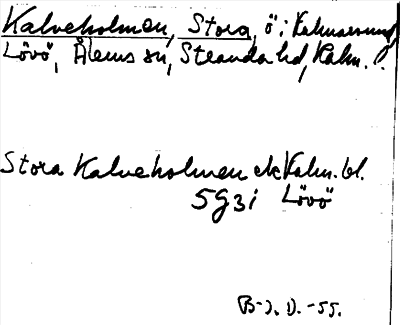 Kalveholmen, Stora, ö i Kalmarsund,
Lövö, Ålems sn, Stranda hd, Kalm. l.
Stora Kalveholmen ek Kalm. bl.
5G3i Lövö
B-J. D. -55.